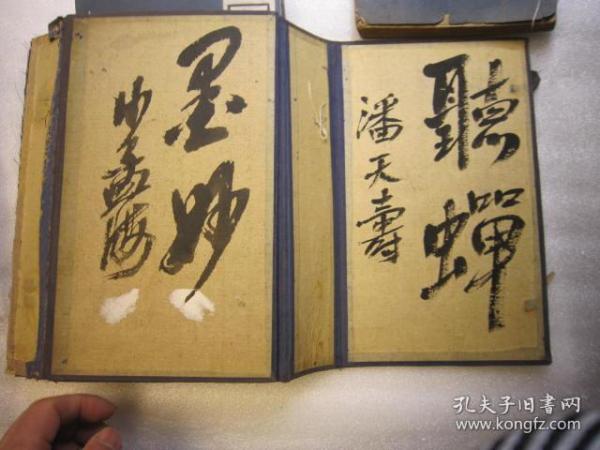 聽蟬
潘天壽
墨妙
沙孟海
孔夫子旧書网
www.kongfz.com